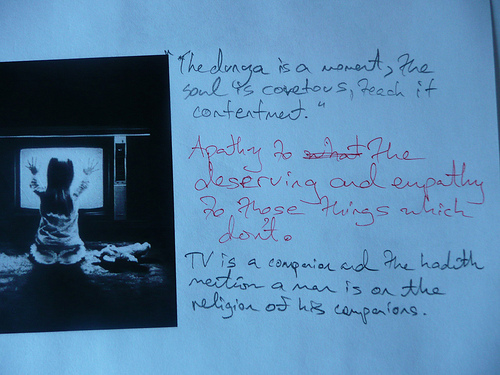 "The dunya is a moment, the
soul is covetous, teach it
contentment."
Apathy to what the
deserving and empathy
to those things which
don't.
TV is a companion and the hadith
mention a man is on the
religion of his companions.